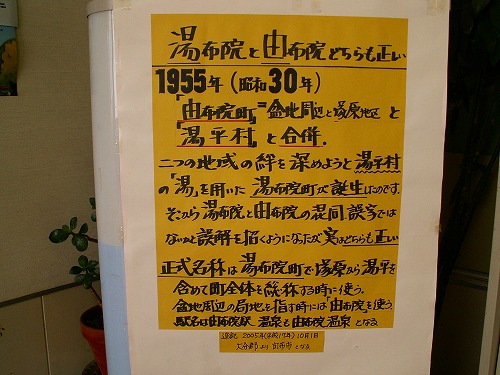 湯布院と由布院どちらも正しい
1955年(昭和30年)
「由布院町」=盆地周辺と塚原地区と
「湯平村」と合併.
二つの地域の絆を深めようと湯平村
の「湯」を用いた湯布院町が誕生したのです.
そこから湯布院と由布院の混同、誤字では
ないかと誤解を招くようになったが実はどちらも正しい
正式名称は湯布院町で塚原から湯平を
含めて町全体を総称する時に使う.
盆地周辺の局地を指す時には「由布院」を使う
駅名は由布院駅 温泉も由布院温泉となる
追記 2005年(平成17年)10月1日
大分郡より由布市となる